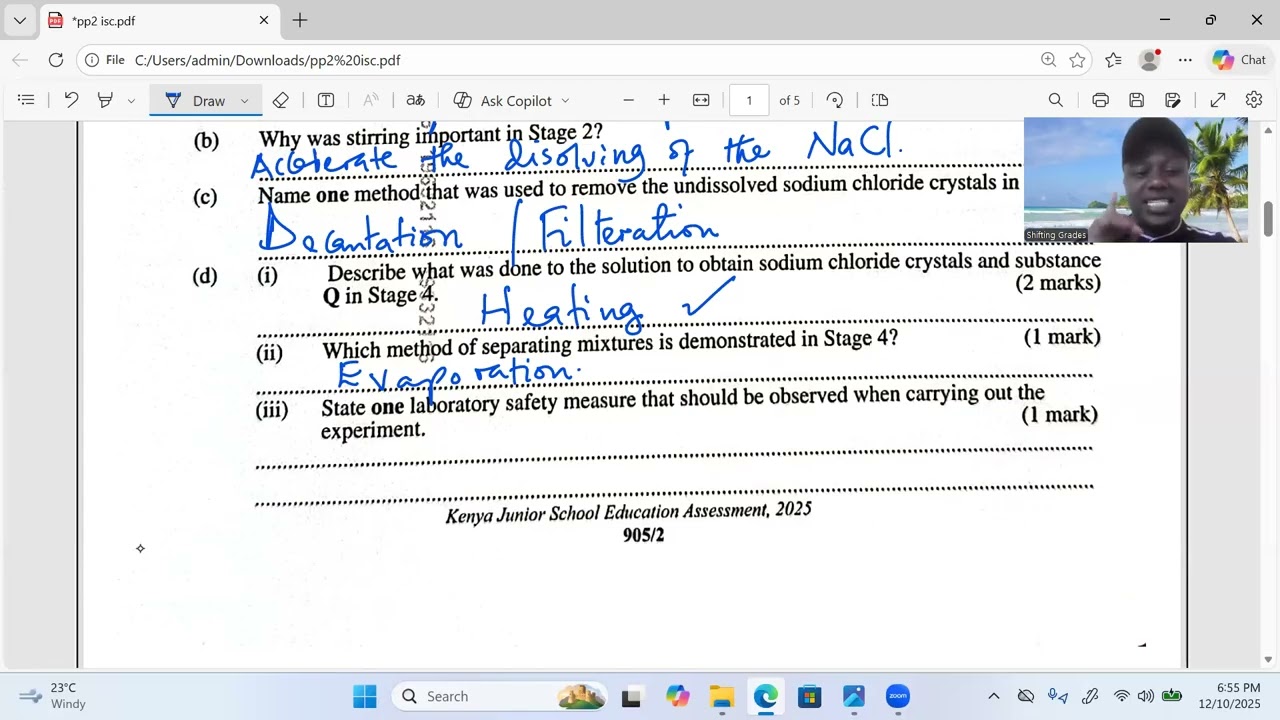 *pp2 isc.pdf
File C:/Users/admin/Downloads/pp2%20isc.pdf
Chat
Draw
Ask Copilot
1 of 5
(b) Why was stirring important in Stage 2?
the disolving of the NaCl.
(c) Name one method that was used to remove the undissolved sodium chloride crystals in
Decantation / Filteration
Shifting Grades
(d) (i) Describe what was done to the solution to obtain sodium chloride crystals and substance
Q in Stage 4. (2 marks)
Heating ✓
(ii) Which method of separating mixtures is demonstrated in Stage 4? (1 mark)
Evaporation.
(iii) State one laboratory safety measure that should be observed when carrying out the
experiment. (1 mark)
Kenya Junior School Education Assessment, 2025
905/2
23°C
Windy
Search
zoom
6:55 PM
12/10/2025